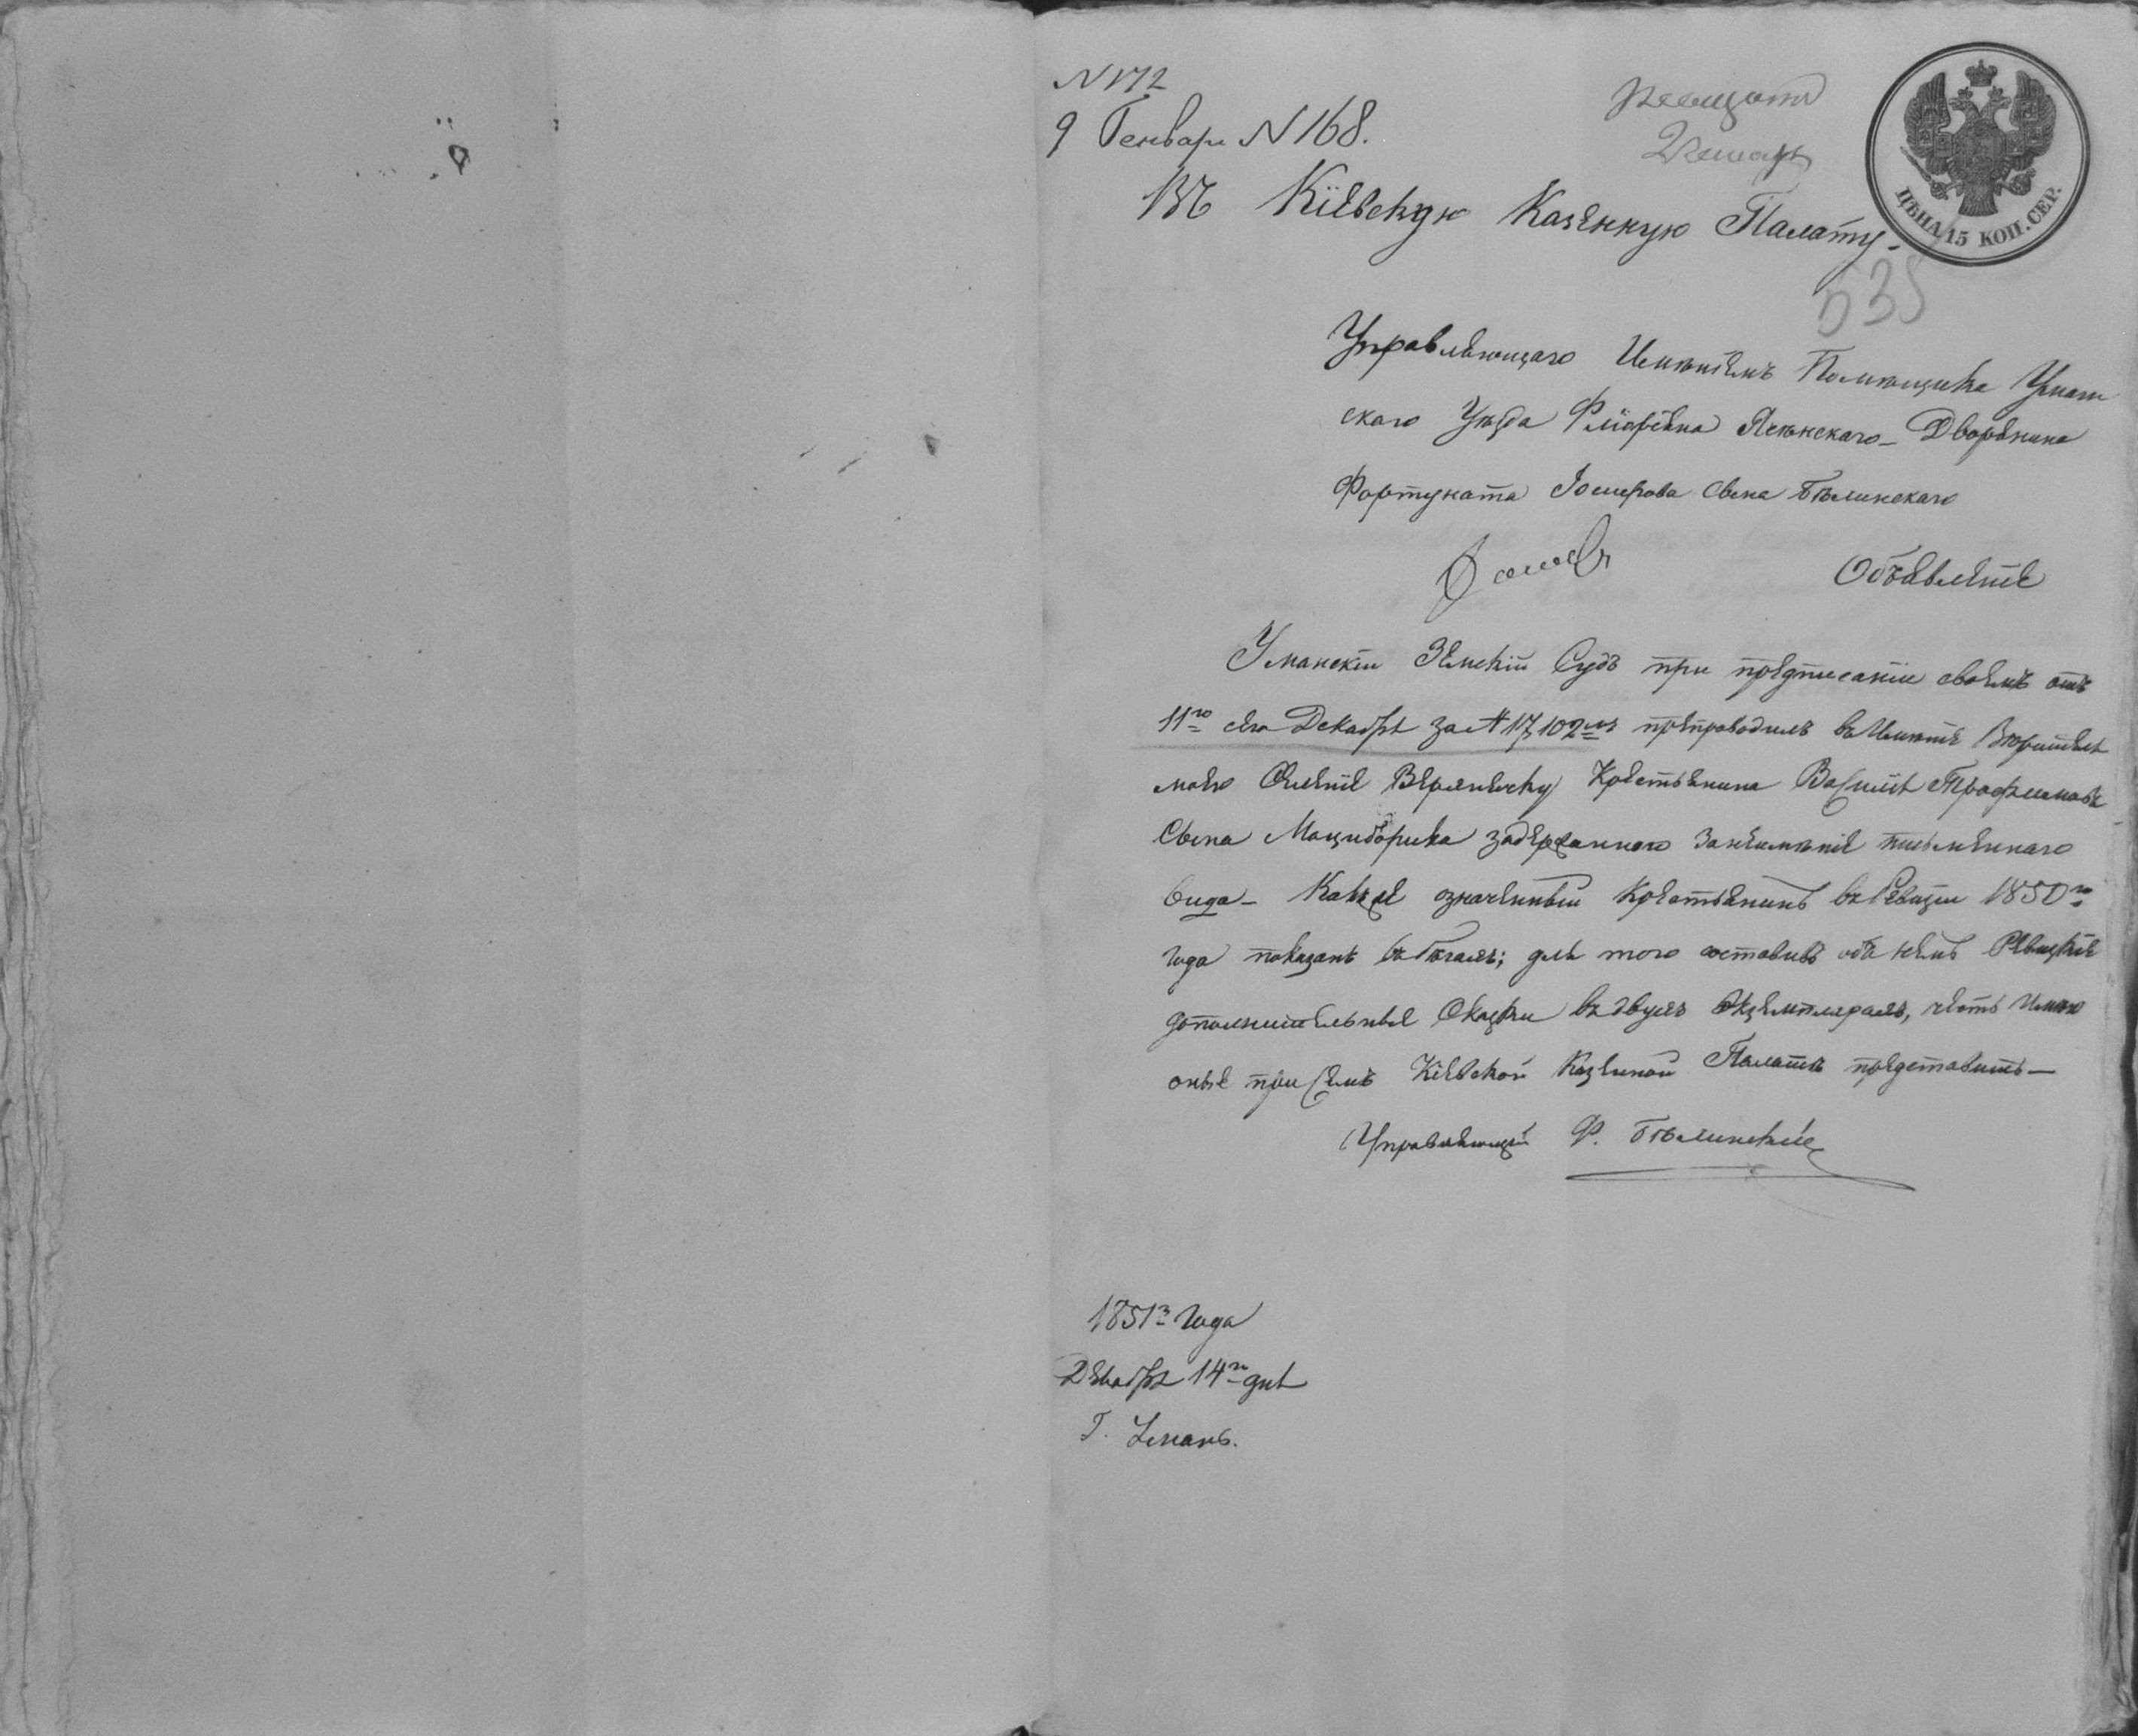 N 172
9 Генваря N 168.
ЦѢНА 15 КОП. СЕР.
Въ Кіевскую Казенную Палату.
535
Управляющаго Имѣніемъ Помѣщика Уман
скаго Уѣзда Флоріяна Ясѣнскаго – Дворянина
Фортуната сына Бѣлинскаго
Объявленіе
Уманскій Земскій Судъ при предписаніи своемъ отъ
11го сего Декабря за № 17,102мъ препроводилъ въ Имѣніе
моего Селеніе Крестьянина Василія Трофимова
Сына Мациборика задержаннаго за неимѣніе письменнаго
вида – Какъ же означенный Крестьянинъ въ Ревизіи 1850го
года показанъ въ бѣгахъ; для того составивъ объ немъ Ревизкіе
дополнительныя Сказки въ двухъ Экземплярахъ, честь имѣю
оные при семъ Кіевской Казенной Палатѣ представить –
Управляющій Ф. Бѣлинскій
1851го Года
Декабря 14го дня
Г. Умань.